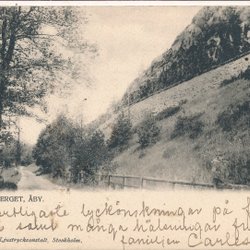 ERGET, ÅBY.
Ljustrycksanstalt, Stockholm.
ertligaste lyckönskningar på f
som många hälsningar f
familjen Carlb